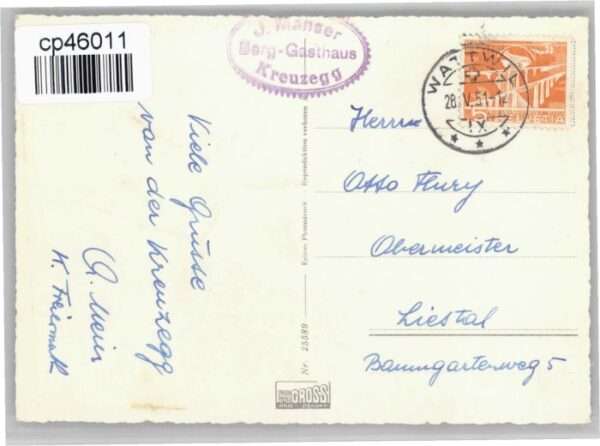 cp46011
J. Manser
Berg-Gasthaus
Kreuzegg
WATTWIL
28.V.51-1
IX
HELVETIA
Viele Grüsse
von der Kreuzegg
A. Meier
Herrn
Otto Flury
Obermeister
Liestal
Baumgartenweg 5
Reproduktion verboten
Nr. 25589
GROSS